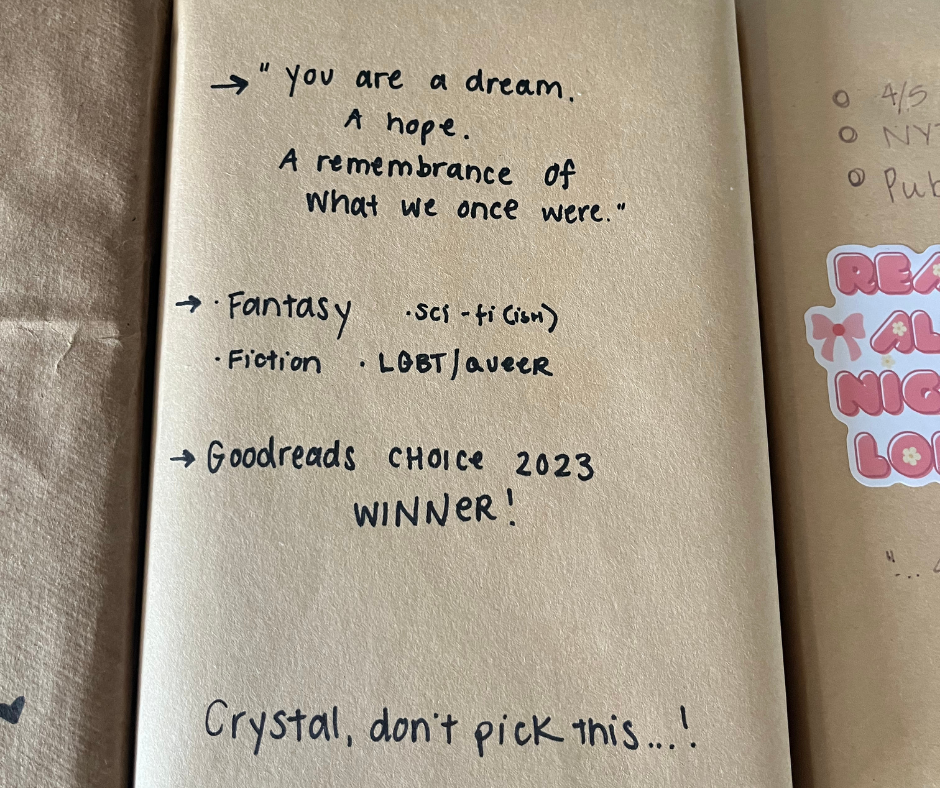 → "you are a dream.
A hope.
A remembrance of
what we once were."
→ · Fantasy · sci-fi (ish)
· Fiction · LGBT/queer
→ Goodreads CHOICe 2023
WINNeR!
Crystal, don't pick this...!
4/5
NY
Pub
REA
AL
NIG
LO
"...